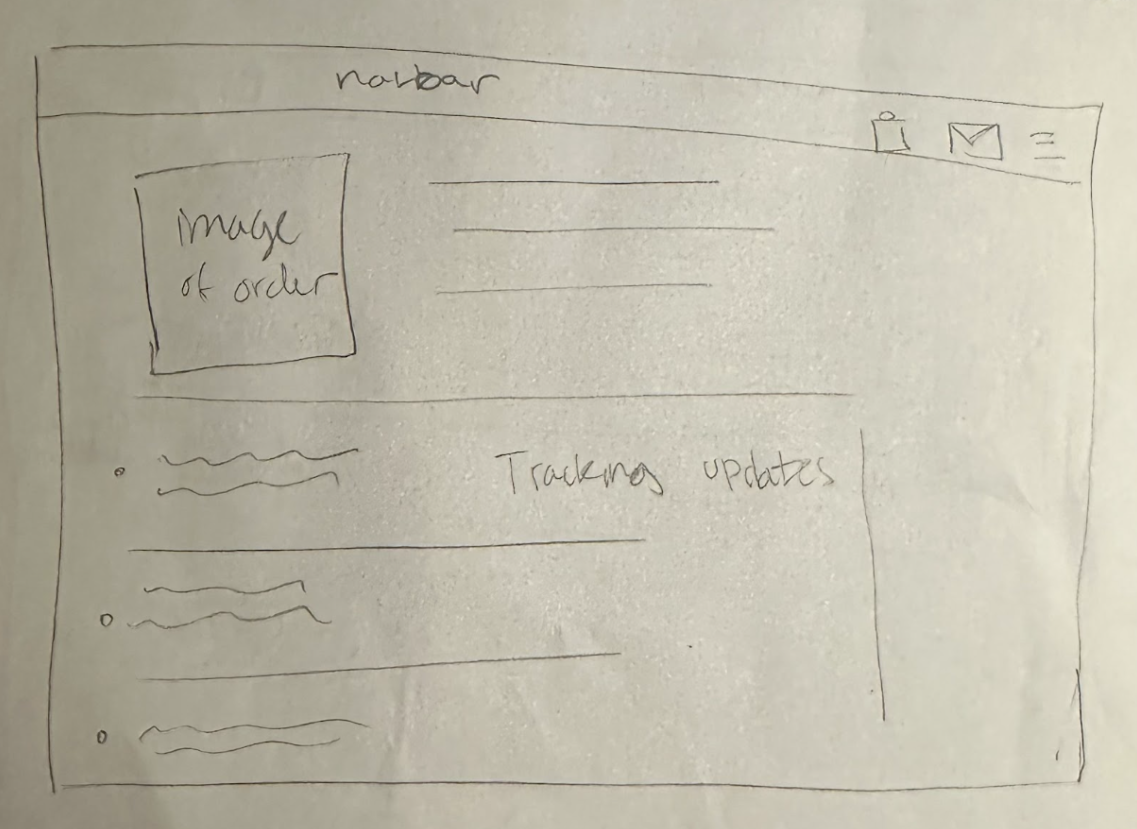 navbar
image
of order
Tracking updates